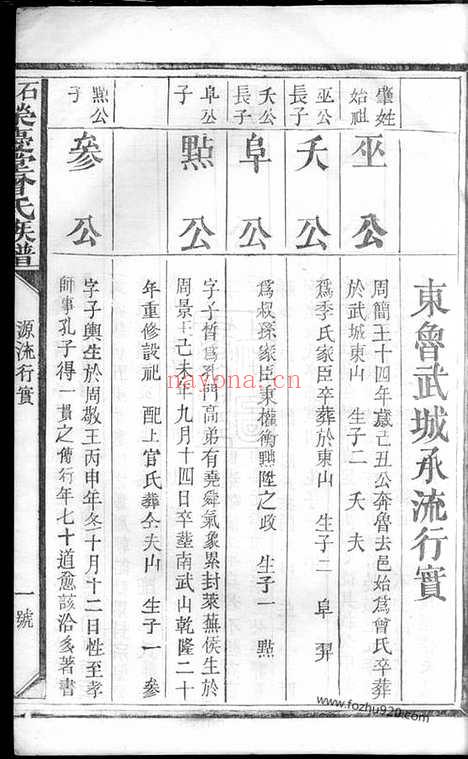 東魯武城承流行實
肇姓始祖
巫公
周簡王十四年歲己丑公奔魯去邑始爲曾氏卒葬
於武城東山 生子二 夭 夫
巫公長子
夭公
爲季氏家臣卒葬於東山 生子二 阜 羿
夭公長子
阜公
爲叔孫家臣秉權衡黜陞之政 生子一 點
阜公子
點公
字子晳爲孔門高弟有堯舜氣象累封萊蕪侯生於
周景王己未年九月十四日卒塟南武山乾隆二十
年重修設祀 配上官氏葬仝夫山 生子一 參
點公子
參公
字子輿生於周敬王丙申年冬十月十二日性至孝
師事孔子得一貫之傳行年七十道愈該洽多著書
石 堂曾氏族譜
源流行實
一號
nayona.cn
www.fozhu920.com